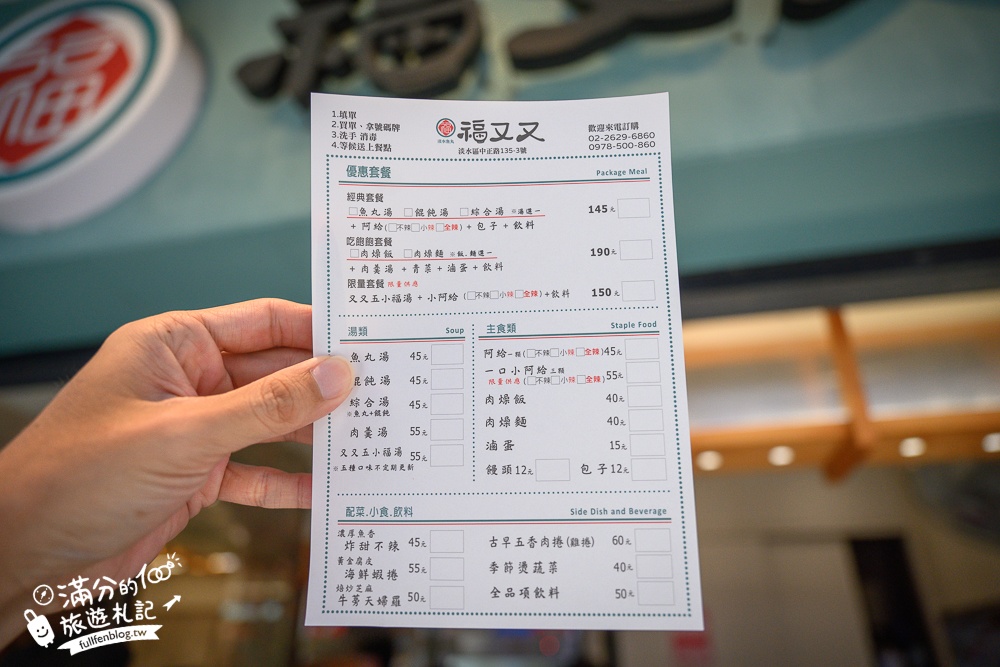 福又又
福
1.填單
2.買單、拿號碼牌
3.洗手 消毒
4.等候送上餐點
福又又
淡水區中正路135-3號
歡迎來電訂購
02-2629-6860
0978-500-860
優惠套餐 Package Meal
經典套餐
□魚丸湯 □餛飩湯 □綜合湯 ※湯選一 145元
+ 阿給(□不辣□小辣□全辣) + 包子 + 飲料
吃飽飽套餐
□肉燥飯 □肉燥麵 ※飯.麵選一 190元
+ 肉羹湯 + 青菜 + 滷蛋 + 飲料
限量套餐 限量供應
又又五小福湯 + 小阿給 (□不辣□小辣□全辣) +飲料 150元
湯類 Soup
魚丸湯 45元
餛飩湯 45元
綜合湯 45元
※魚丸+餛飩
肉羹湯 55元
又又五小福湯 55元
※五種口味不定期更新
主食類 Staple Food
阿給一顆(□不辣□小辣□全辣)45元
一口小阿給三顆 55元
限量供應(□不辣□小辣□全辣)
肉燥飯 40元
肉燥麵 40元
滷蛋 15元
饅頭12元 包子12元
配菜.小食.飲料 Side Dish and Beverage
濃厚魚香
炸甜不辣 45元
黃金腐皮
海鮮蝦捲 55元
焙炒芝麻
牛蒡天婦羅 50元
古早五香肉捲(雞捲) 60元
季節燙蔬菜 40元
全品項飲料 50元
滿分的
旅遊札記
fullfenblog.tw